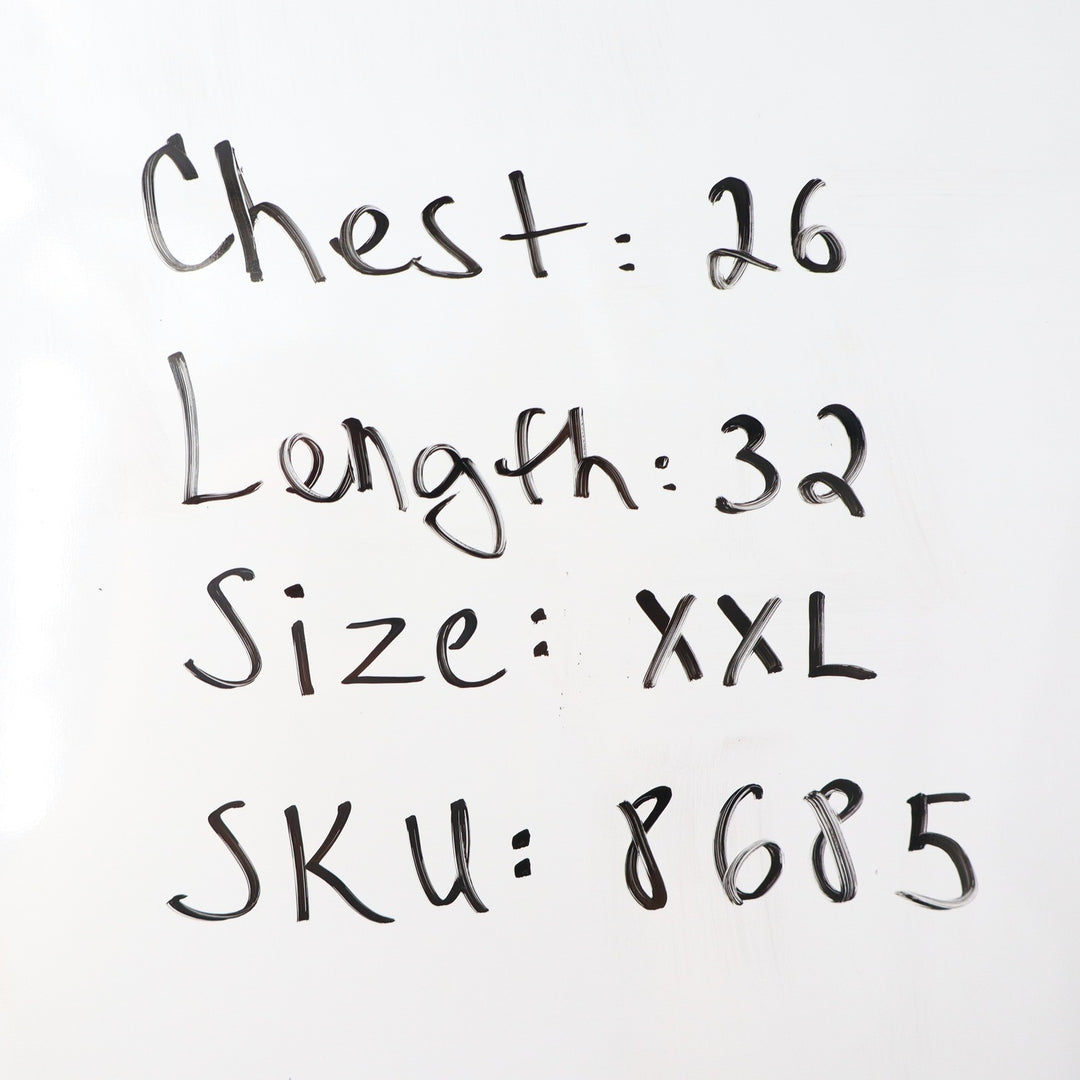 Chest: 26
Length: 32
Size: XXL
SKU: 8685